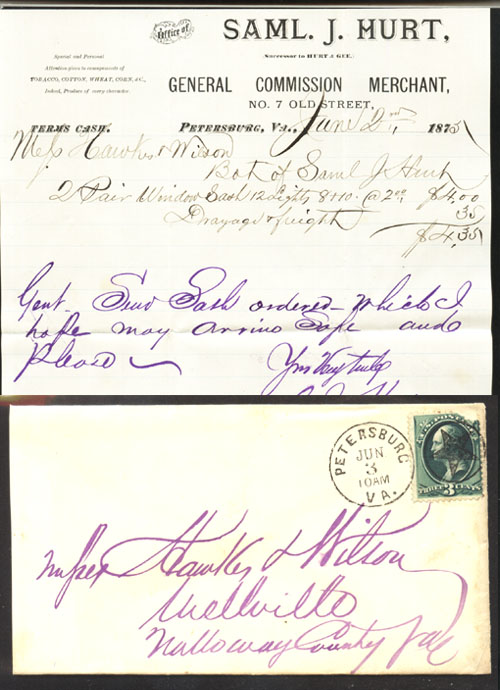 Office of
SAML. J. HURT,
(Successor to HURT & GEE,)
Special and Personal
Attention given to consignments of
TOBACCO, COTTON, WHEAT, CORN, &C.,
Indeed, Produce of every character.
GENERAL COMMISSION MERCHANT,
NO. 7 OLD STREET,
TERMS CASH. PETERSBURG, VA., June 2nd, 1875
Mess Hawkes & Wilson
Bot of Saml J Hurt
2 Pair Window Sash 12 Lights 8x10 @ 2.00 $4.00
Drayage & freight 35
$4.35
Gent. Send Sash ordered - which I
hope may arrive Safe and
Please
Yrs Very truly
PETERSBURG
JUN
3
10AM
VA.
THREE 3 CENTS
Messrs Hawkes & Wilson
Wellville
Nottoway County Va